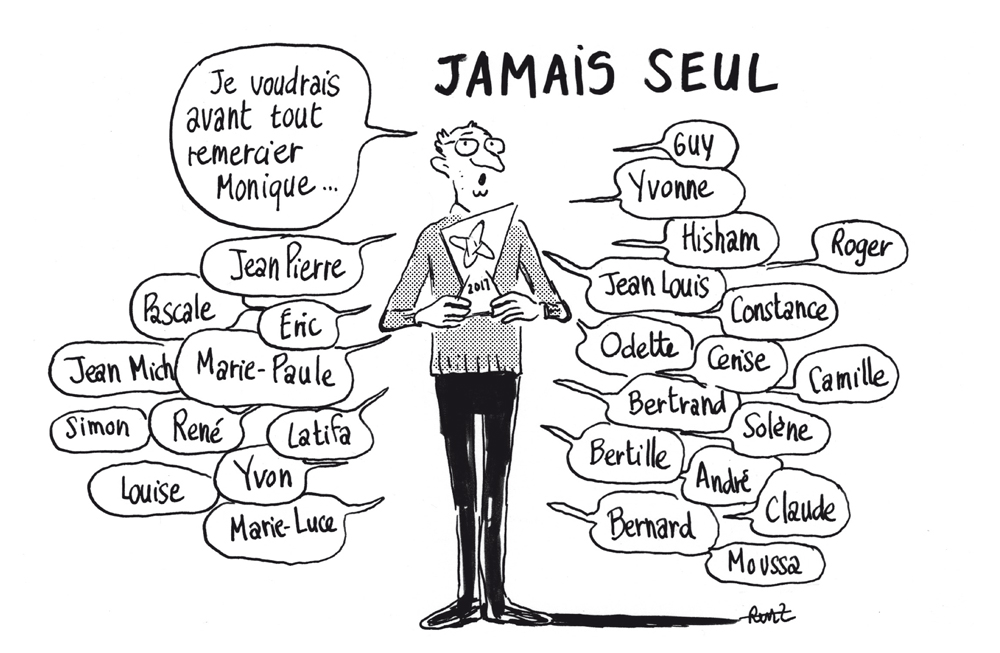 JAMAIS SEUL
Je voudrais
avant tout
remercier
Monique...
Jean Pierre
Pascale
Éric
Jean Mich
Marie-Paule
Simon
René
Latifa
Yvon
Louise
Marie-Luce
2017
Guy
Yvonne
Hisham
Roger
Jean Louis
Constance
Odette
Cerise
Camille
Bertrand
Solène
Bertille
André
Claude
Bernard
Moussa